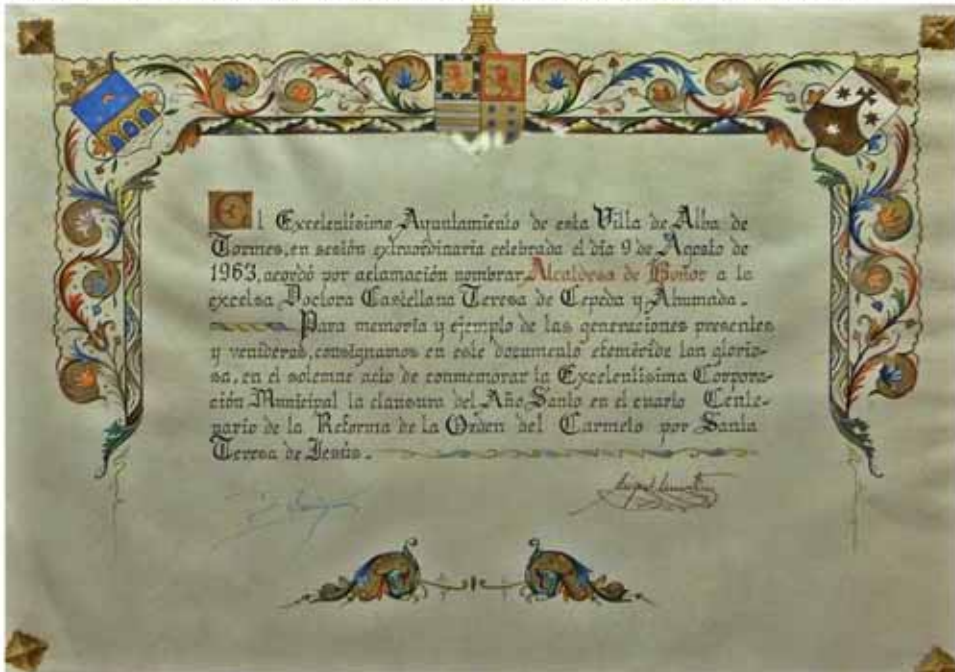 El Excelentísimo Ayuntamiento de esta Villa de Alba de
Tormes, en sesión extraordinaria celebrada el día 9 de Agosto de
1963, acordó por aclamación nombrar Alcaldesa de Honor a la
excelsa Doctora Castellana Teresa de Cepeda y Ahumada.
Para memoria y ejemplo de las generaciones presentes
y venideras, consignamos en este documento efeméride tan glorio-
sa, en el solemne acto de conmemorar la Excelentísima Corpora-
ción Municipal la clausura del Año Santo en el cuarto Cente-
nario de la Reforma de la Orden del Carmelo por Santa
Teresa de Jesús.